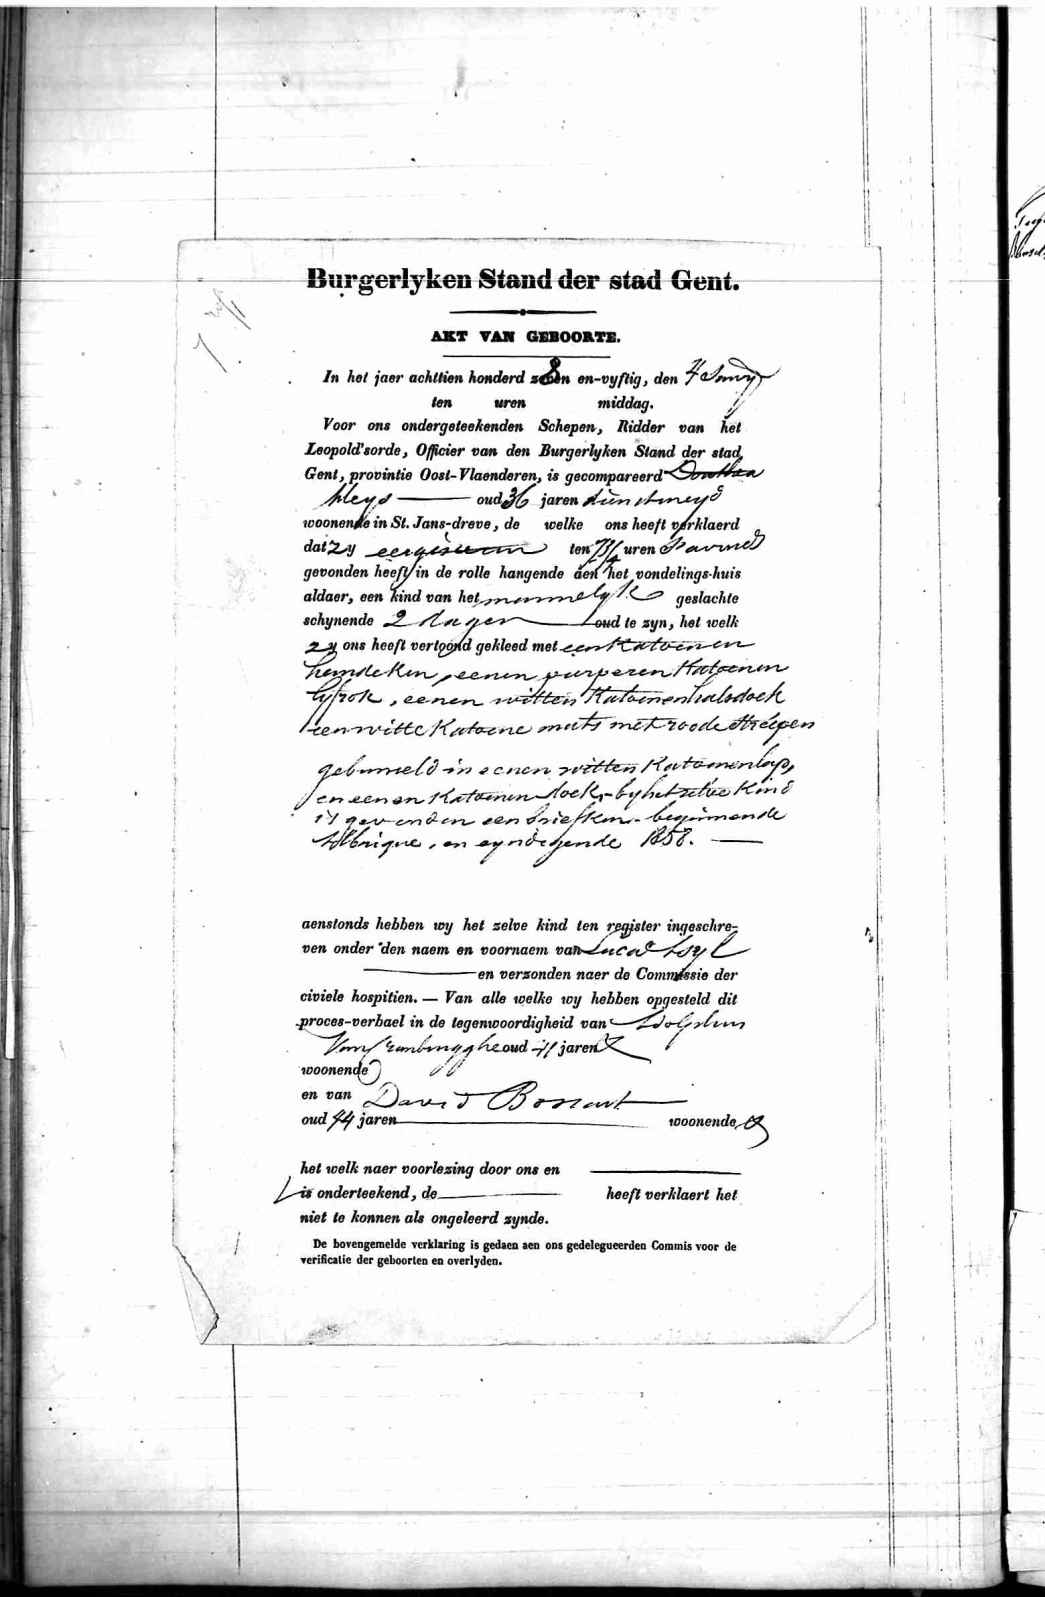 Burgerlyken Stand der stad Gent.
AKT VAN GEBOORTE.
In het jaer achttien honderd 8 en-vyftig, den 4
ten uren middag.
Voor ons ondergeteekenden Schepen, Ridder van het
Leopold'sorde, Officier van den Burgerlyken Stand der stad
Gent, provintie Oost-Vlaenderen, is gecompareerd
oud 36 jaren dienstmeyd
woonende in St. Jans-dreve, de welke ons heeft verklaerd
dat zy eergisteren ten uren
gevonden heeft in de rolle hangende aen het vondelings-huis
aldaer, een kind van het mannelyk geslachte
schynende 2 dagen oud te zyn, het welk
zy ons heeft vertoond gekleed met een Katoenen
hemdeken, eenen purperen Katoenen
lyfrok, eenen witten Katoenen halsdoek
een witte Katoene muts met roode streepen
gebunseld in eenen witten Katoenen lap,
en eenen Katoenen doek, by het zelve Kind
is gevonden een briefken beginnende
en eyndigende 1858.
aenstonds hebben wy het zelve kind ten register ingeschre-
ven onder den naem en voornaem van Lucas
en verzonden naer de Commissie der
civiele hospitien. — Van alle welke wy hebben opgesteld dit
proces-verbael in de tegenwoordigheid van Adolphus
oud jaren
woonende
en van David Bossaert
oud 44 jaren woonende
het welk naer voorlezing door ons en
is onderteekend, de heeft verklaert het
niet te konnen als ongeleerd zynde.
De bovengemelde verklaring is gedaen aen ons gedelegueerden Commis voor de
verificatie der geboorten en overlyden.